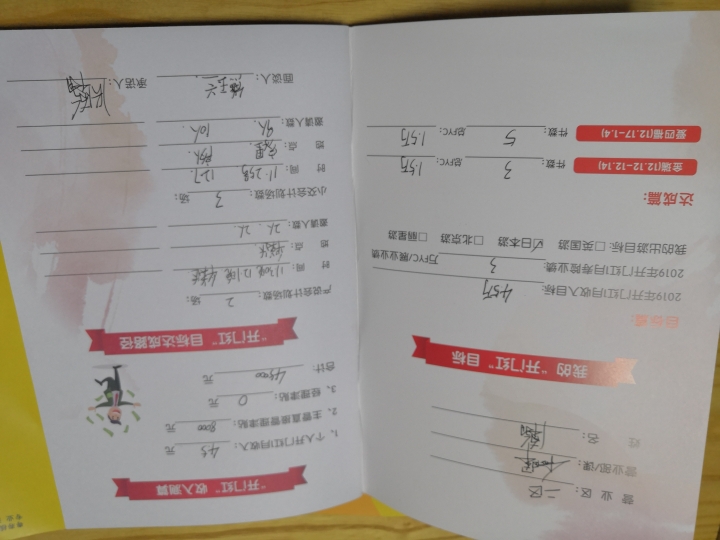 营 业 区: 二区
营业部/课:
姓 名:
我的“开门红”目标
目标篇:
2019年开门红1月收入目标: 4.5万
2019年开门红1月寿险业绩: 3 万FYC/展业业绩
我的出游目标: □英国游 ☑日本游 □北京游 □丽星游
达成篇:
金瑞(12.12-12.14) 件数: 3 总FYC: 1.5万
爱四福(12.17-1.4) 件数: 5 总FYC: 1.5万
“开门红”收入测算
1、个人开门红1月收入: 45 元
2、主管直接管理津贴: 8000 元
3、经理津贴: 0 元
合计: 48000 元
“开门红”目标达成路径
产说会计划场数: 2 场:
时 间:
地 点:
邀请人数: 2人. 2人
小交会计划场数: 3 场:
时 间: 11.25号 12.7
地 点:
邀请人数: 9人. 10人.
面谈人:
承诺人: